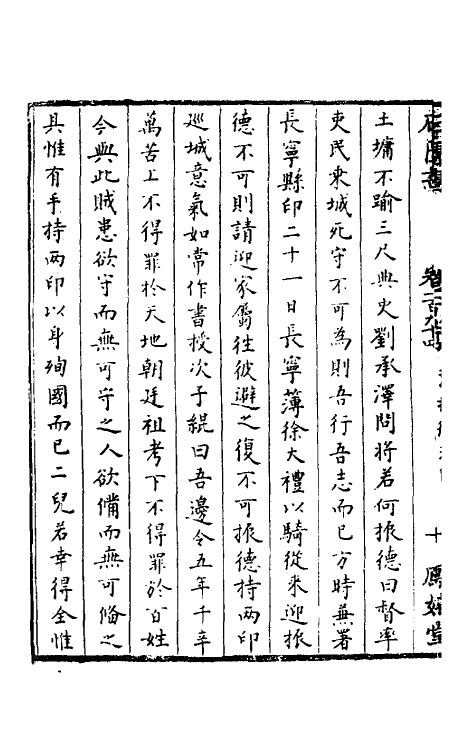 土墉不踰三尺典史劉承澤問將若何振德曰督率
吏民乗城死守不可為則吾行吾志而已方時兼署
長寧縣印二十一日長寧薄徐大禮以騎從来迎振
德不可則請迎家屬徃彼避之復不可振德持两印
廵城意氣如常作書授次子緄曰吾邊令五年千辛
萬苦上不得罪於天地朝廷祖考下不得罪於百姓
今與此賊患欲守而無可守之人欲備而無可備之
具惟有手持两印以身殉國而已二兒若幸得全惟